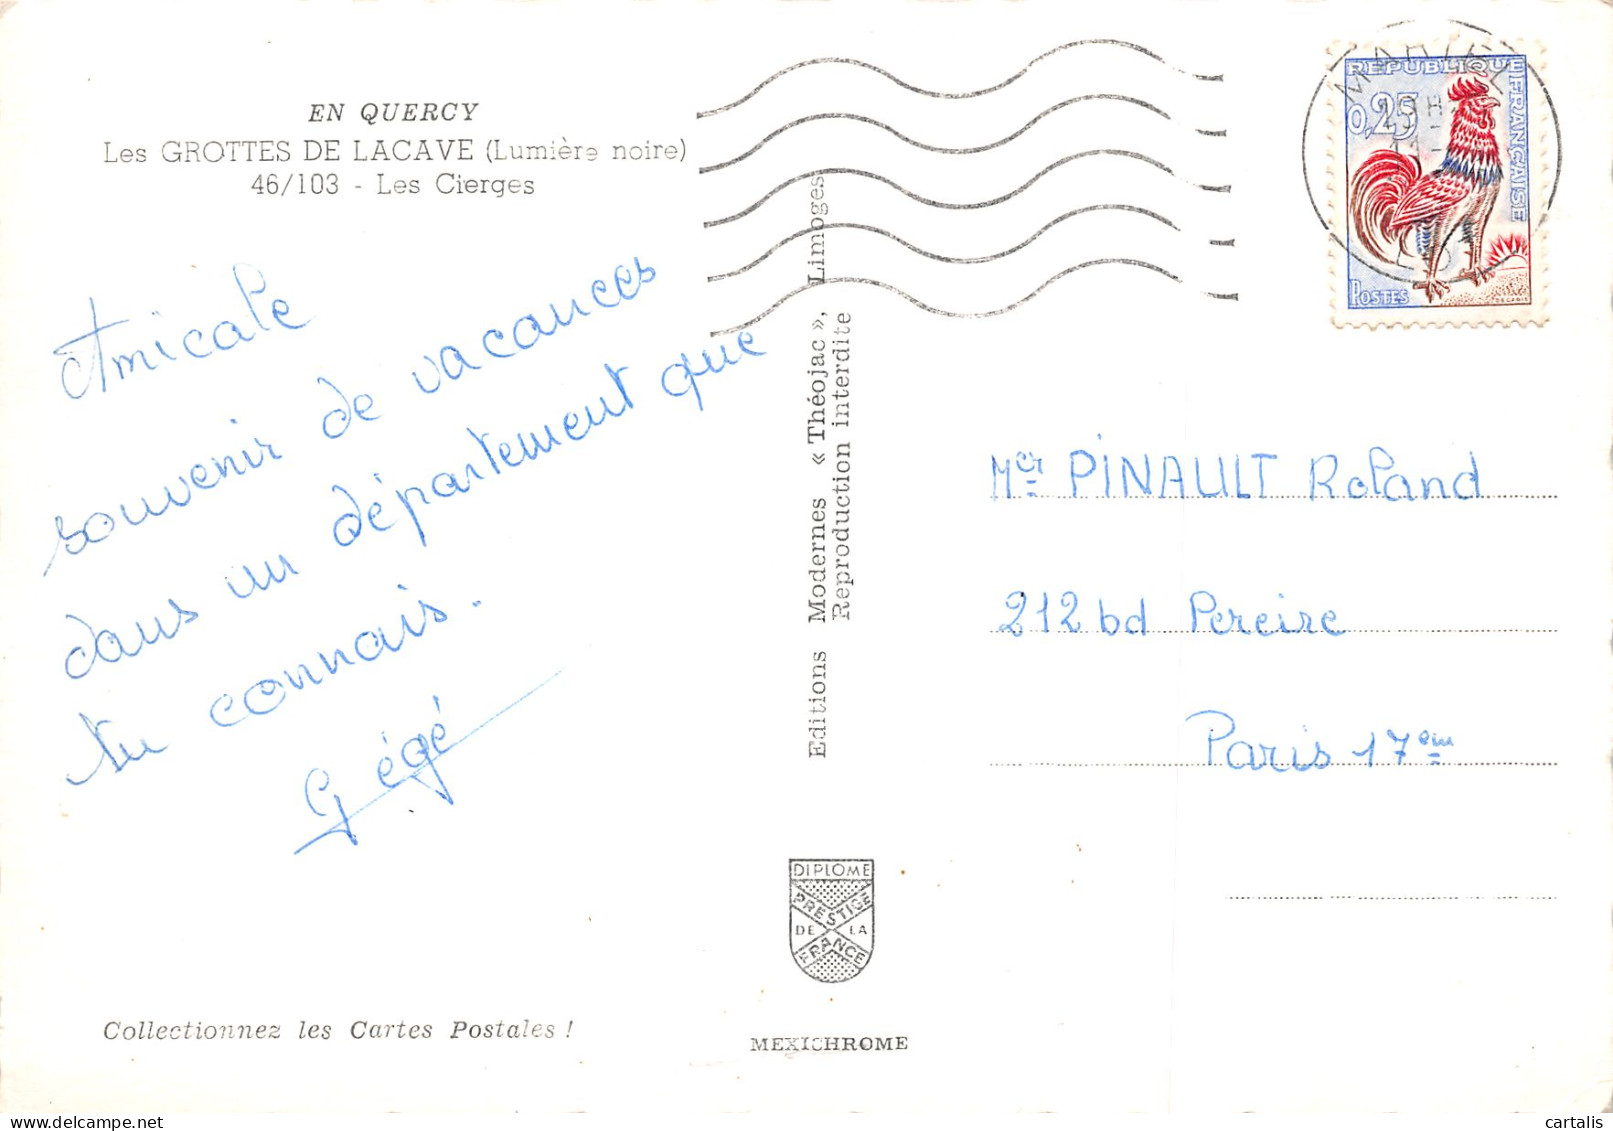 EN QUERCY
Les GROTTES DE LACAVE (Lumière noire)
46/103 - Les Cierges
Amicale
souvenir de vacances
dans un département que
tu connais.
Gégé
Collectionnez les Cartes Postales !
Editions Modernes « Théojac », Limoges
Reproduction interdite
DIPLOME
PRESTIGE
DE LA
FRANCE
MEXICHROME
REPUBLIQUE FRANÇAISE
0,25
POSTES
DECARIS
LOT
Mer PINAULT Roland
212 bd Pereire
Paris 17em
cartalis
delcampe.net